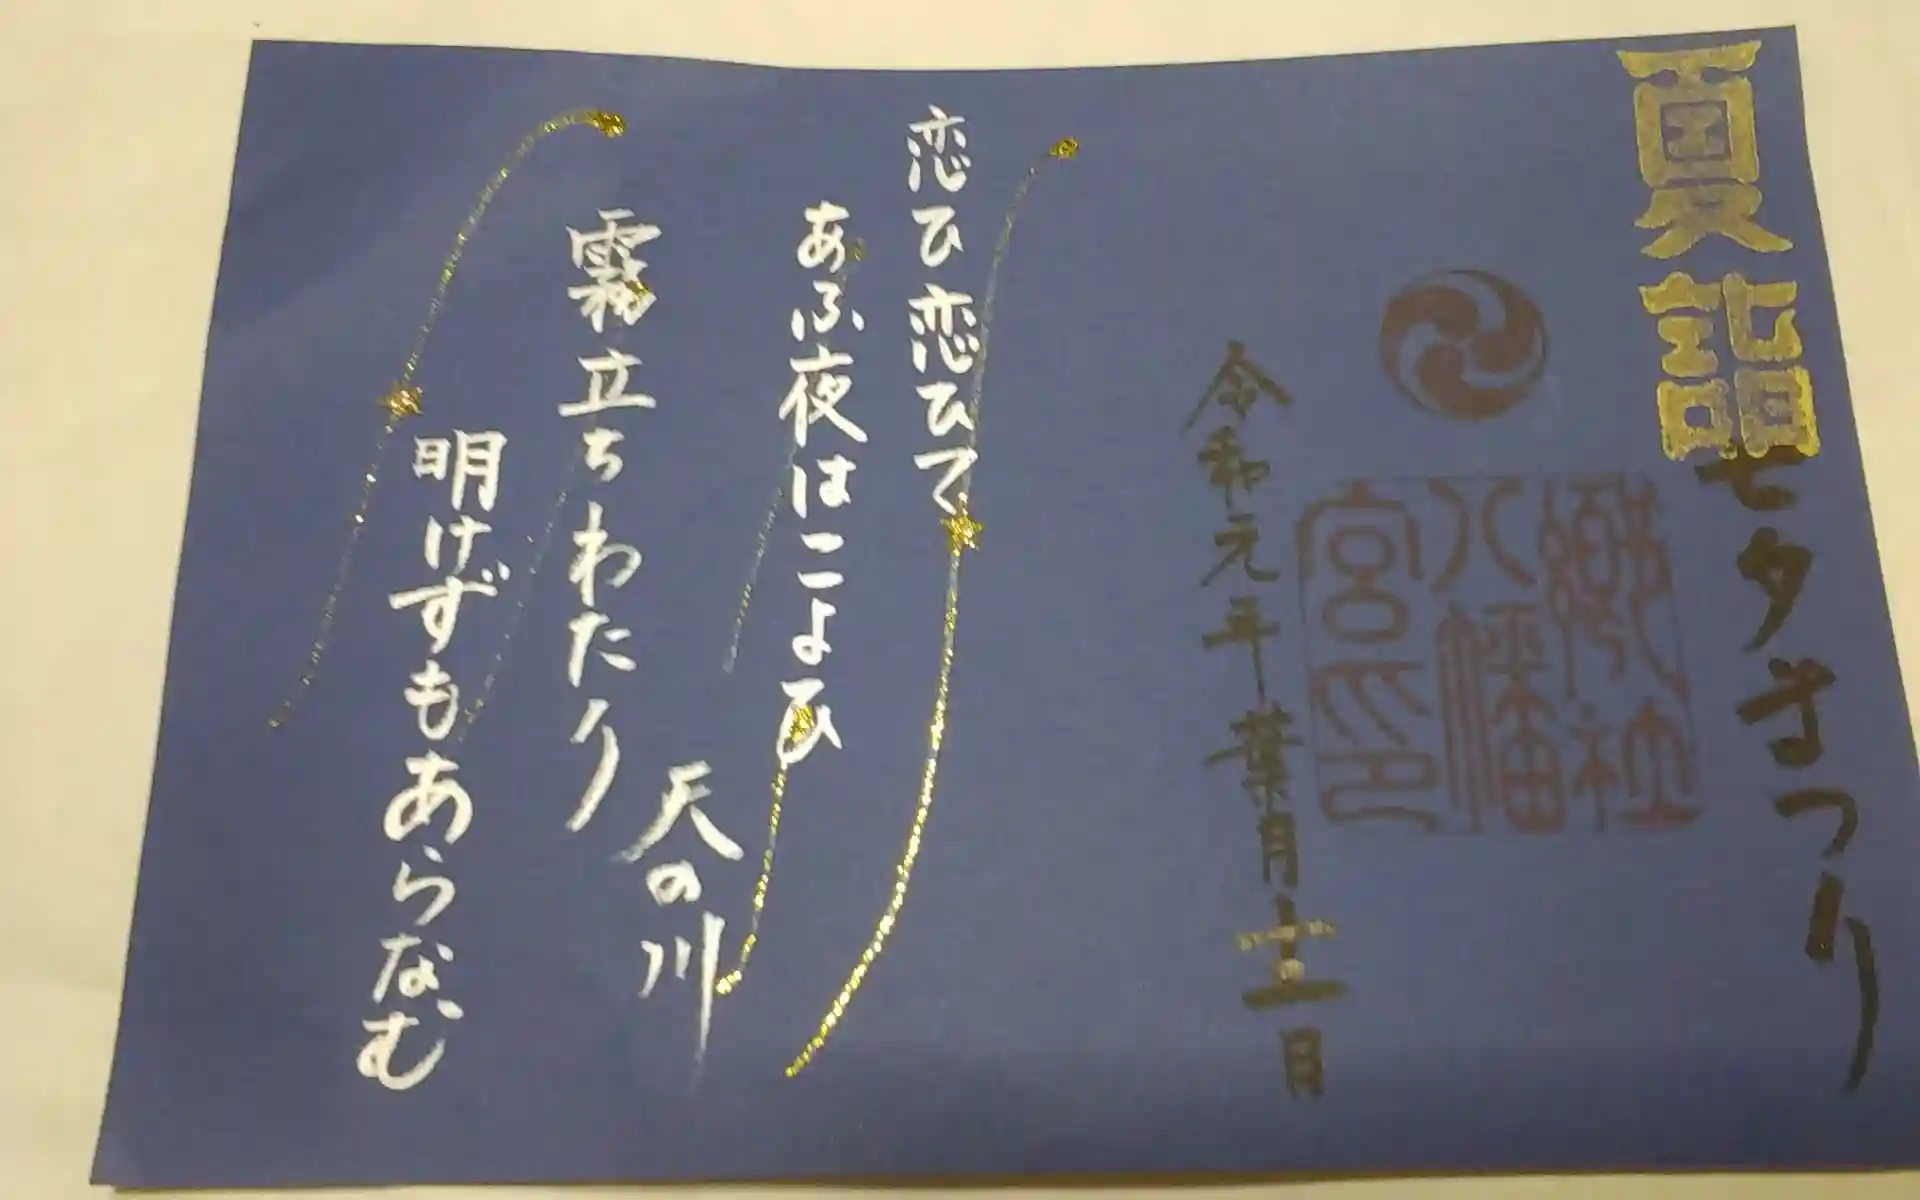 夏詣
七夕まつり
郷社
八幡
宮印
令和元年葉月十二日
恋ひ恋ひて
あふ夜はこよひ
天の川
霧立ちわたり
明けずもあらなむ